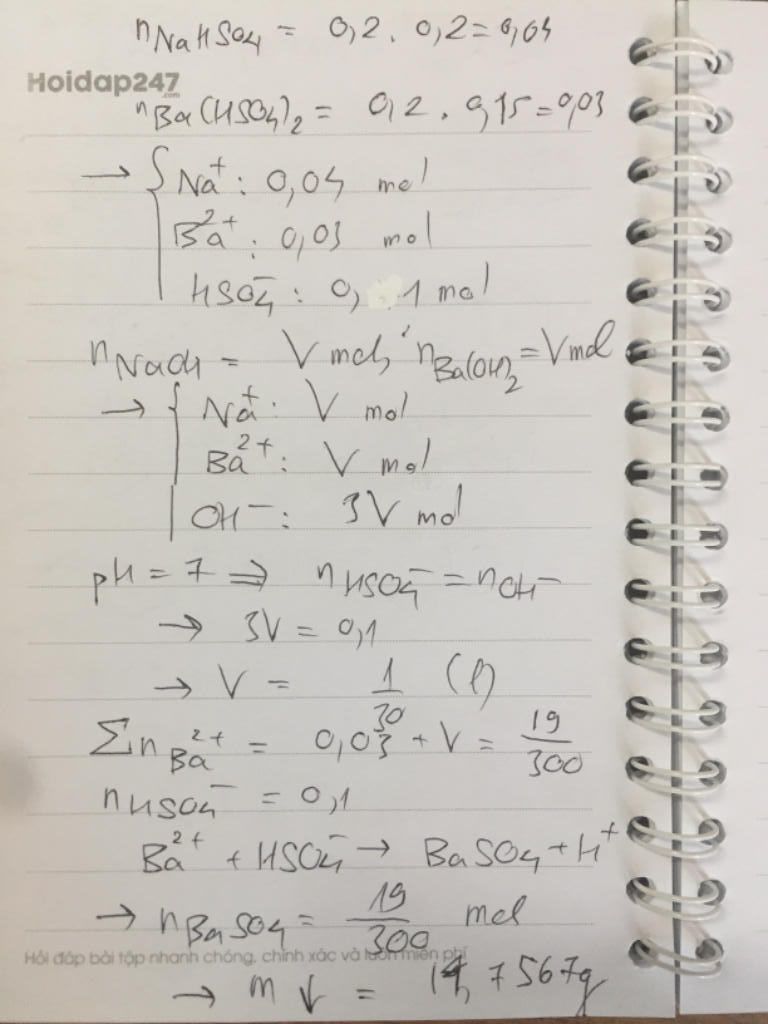 nNaHSO4 = 0,2 . 0,2 = 0,04
Hoidap247
.com
nBa(HSO4)2 = 0,2 . 0,15 = 0,03
→ { Na+ : 0,04 mol
Ba2+ : 0,03 mol
HSO4- : 0,1 mol
nNaOH = V mol, nBa(OH)2 = V mol
→ { Na+ : V mol
Ba2+ : V mol
OH- : 3V mol
pH = 7 ⇒ nHSO4- = nOH-
→ 3V = 0,1
→ V = 1/30 (l)
∑nBa2+ = 0,03 + V = 19/300
nHSO4- = 0,1
Ba2+ + HSO4- → BaSO4 + H+
→ nBaSO4 = 19/300 mol
Hỏi đáp bài tập nhanh chóng, chính xác và luôn miễn phí
→ m↓ = 14,7567g